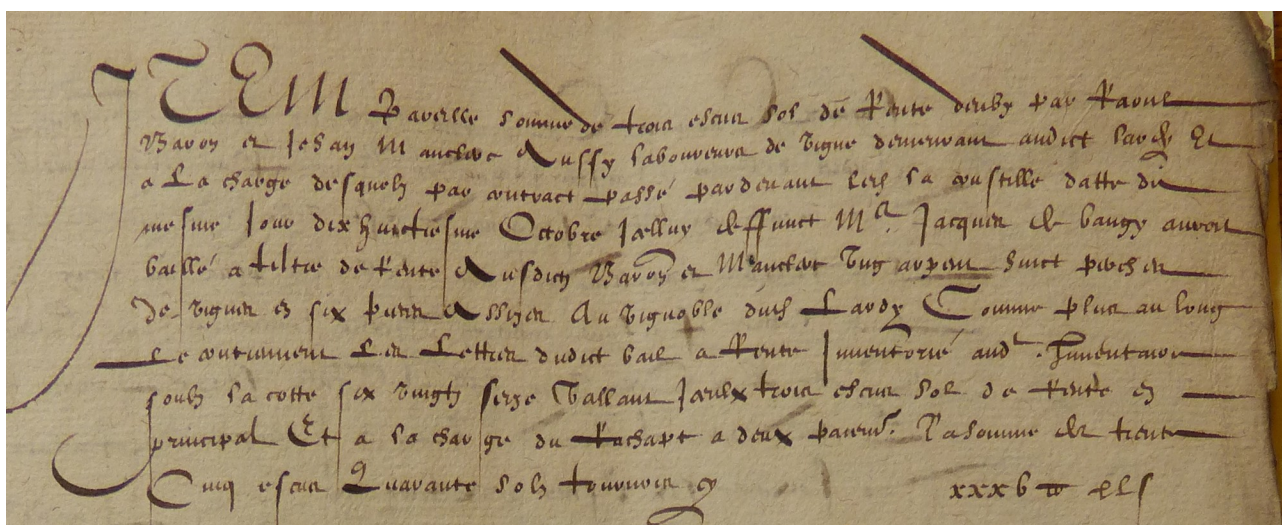 ITEM Pareille somme de trois escus sol de Rente deubz par Raoul
Baron et Jehan Mauclerc Aussy laboureurs de vigne demeurant audict Lardy Et
a La charge desquelz par contract passé pardevant led la coustille datte du
mesme Jour dixhuictiesme Octobre Icelluy deffunct Mr. Jacques de baugy auroit
baillé a tiltre de Rente Ausdictz Baron et Mauclerc Ung arpent huict perches
De vignes en six pieces Assizes Au vignoble dud Lardy Comme plus au long
Le contiennent Les Lettres dudict bail a Rente Inventorié aud. Inventaire
soubz la cotte six vingtz seize Vallant Iceulx trois escus sol de Rente en
principal Et a la charge du Rachapt a deux paiemr. La somme de trente
Cinq escus Quarante solz tournois cy xxxv  xls